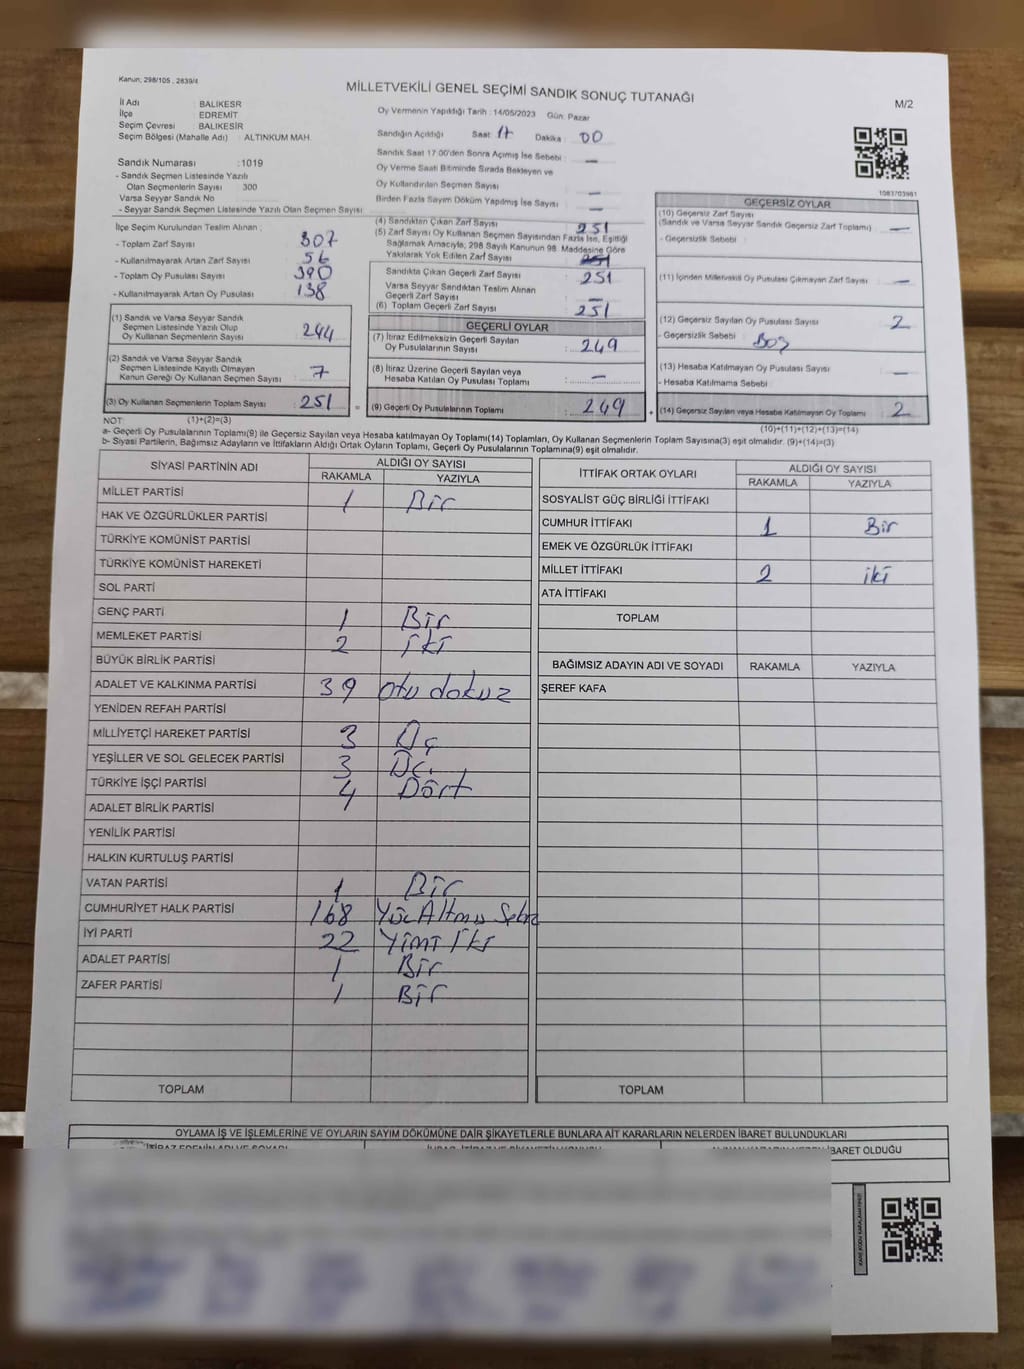 Kanun; 298/105 , 2839/4
MİLLETVEKİLİ GENEL SEÇİMİ SANDIK SONUÇ TUTANAĞI
M/2
İl Adı : BALIKESR
İlçe : EDREMIT
Seçim Çevresi : BALIKESİR
Seçim Bölgesi (Mahalle Adı) : ALTINKUM MAH.
Sandık Numarası : 1019
- Sandık Seçmen Listesinde Yazılı
Olan Seçmenlerin Sayısı 300
Varsa Seyyar Sandık No
- Seyyar Sandık Seçmen Listesinde Yazılı Olan Seçmen Sayısı
İlçe Seçim Kurulundan Teslim Alınan ;
- Toplam Zarf Sayısı : 307
- Kullanılmayarak Artan Zarf Sayısı : 56
- Toplam Oy Pusulası Sayısı : 390
- Kullanılmayarak Artan Oy Pusulası : 138
(1) Sandık ve Varsa Seyyar Sandık
Seçmen Listesinde Yazılı Olup
Oy Kullanan Seçmenlerin Sayısı : 244
(2) Sandık ve Varsa Seyyar Sandık
Seçmen Listesinde Kayıtlı Olmayan
Kanun Gereği Oy Kullanan Seçmen Sayısı : 7
(3) Oy Kullanan Seçmenlerin Toplam Sayısı : 251
Oy Vermenin Yapıldığı Tarih : 14/05/2023 Gün: Pazar
Sandığın Açıldığı Saat : 17 Dakika : 00
Sandık Saat 17:00'den Sonra Açımış İse Sebebi : —
Oy Verme Saati Bitiminde Sırada Bekleyen ve
Oy Kullandırılan Seçmen Sayısı : —
Birden Fazla Sayım Döküm Yapılmış İse Sayısı : —
(4) Sandıktan Çıkan Zarf Sayısı : 251
(5) Zarf Sayısı Oy Kullanan Seçmen Sayısından Fazla İse, Eşitliği
Sağlamak Amacıyla, 298 Sayılı Kanunun 98. Maddesine Göre
Yakılarak Yok Edilen Zarf Sayısı :
Sandıkta Çıkan Geçerli Zarf Sayısı : 251
Varsa Seyyar Sandıktan Teslim Alınan
Geçerli Zarf Sayısı : —
(6) Toplam Geçerli Zarf Sayısı : 251
GEÇERLİ OYLAR
(7) İtiraz Edilmeksizin Geçerli Sayılan
Oy Pusulalarının Sayısı : 249
(8) İtiraz Üzerine Geçerli Sayılan veya
Hesaba Katılan Oy Pusulası Toplamı : —
= (9) Geçerli Oy Pusulalarının Toplamı : 249
1083703981
GEÇERSİZ OYLAR
(10) Geçersiz Zarf Sayısı
(Sandık ve Varsa Seyyar Sandık Geçersiz Zarf Toplamı) : —
- Geçersizlik Sebebi :
(11) İçinden Milletvekili Oy Pusulası Çıkmayan Zarf Sayısı : —
(12) Geçersiz Sayılan Oy Pusulası Sayısı : 2
- Geçersizlik Sebebi : Boş
(13) Hesaba Katılmayan Oy Pusulası Sayısı : —
- Hesaba Katılmama Sebebi :
+ (14) Geçersiz Sayılan veya Hesaba Katılmayan Oy Toplamı : 2
NOT: (1)+(2)=(3)
(10)+(11)+(12)+(13)=(14)
a- Geçerli Oy Pusulalarının Toplamı(9) ile Geçersiz Sayılan veya Hesaba katılmayan Oy Toplamı(14) Toplamları, Oy Kullanan Seçmenlerin Toplam Sayısına(3) eşit olmalıdır. (9)+(14)=(3)
b- Siyasi Partilerin, Bağımsız Adayların ve İttifakların Aldığı Ortak Oyların Toplamı, Geçerli Oy Pusulalarının Toplamına(9) eşit olmalıdır.
SİYASİ PARTİNİN ADI ALDIĞI OY SAYISI
RAKAMLA YAZIYLA
MİLLET PARTİSİ 1 Bir
HAK VE ÖZGÜRLÜKLER PARTİSİ
TÜRKİYE KOMÜNİST PARTİSİ
TÜRKİYE KOMÜNİST HAREKETİ
SOL PARTİ
GENÇ PARTİ 1 Bir
MEMLEKET PARTİSİ 2 iki
BÜYÜK BİRLİK PARTİSİ
ADALET VE KALKINMA PARTİSİ 39 otu dokuz
YENİDEN REFAH PARTİSİ
MİLLİYETÇİ HAREKET PARTİSİ 3 Üç
YEŞİLLER VE SOL GELECEK PARTİSİ 3 Üç
TÜRKİYE İŞÇİ PARTİSİ 4 Dört
ADALET BİRLİK PARTİSİ
YENİLİK PARTİSİ
HALKIN KURTULUŞ PARTİSİ
VATAN PARTİSİ 1 Bir
CUMHURİYET HALK PARTİSİ 168
İYİ PARTİ 22 Yimi İki
ADALET PARTİSİ 1 Bir
ZAFER PARTİSİ 1 Bir
TOPLAM
İTTİFAK ORTAK OYLARI ALDIĞI OY SAYISI
RAKAMLA YAZIYLA
SOSYALİST GÜÇ BİRLİĞİ İTTİFAKI
CUMHUR İTTİFAKI 1 Bir
EMEK VE ÖZGÜRLÜK İTTİFAKI
MİLLET İTTİFAKI 2 iki
ATA İTTİFAKI
TOPLAM
BAĞIMSIZ ADAYIN ADI VE SOYADI RAKAMLA YAZIYLA
ŞEREF KAFA
TOPLAM
OYLAMA İŞ VE İŞLEMLERİNE VE OYLARIN SAYIM DÖKÜMÜNE DAİR ŞİKAYETLERLE BUNLARA AİT KARARLARIN NELERDEN İBARET BULUNDUKLARI
İBARET OLDUĞU